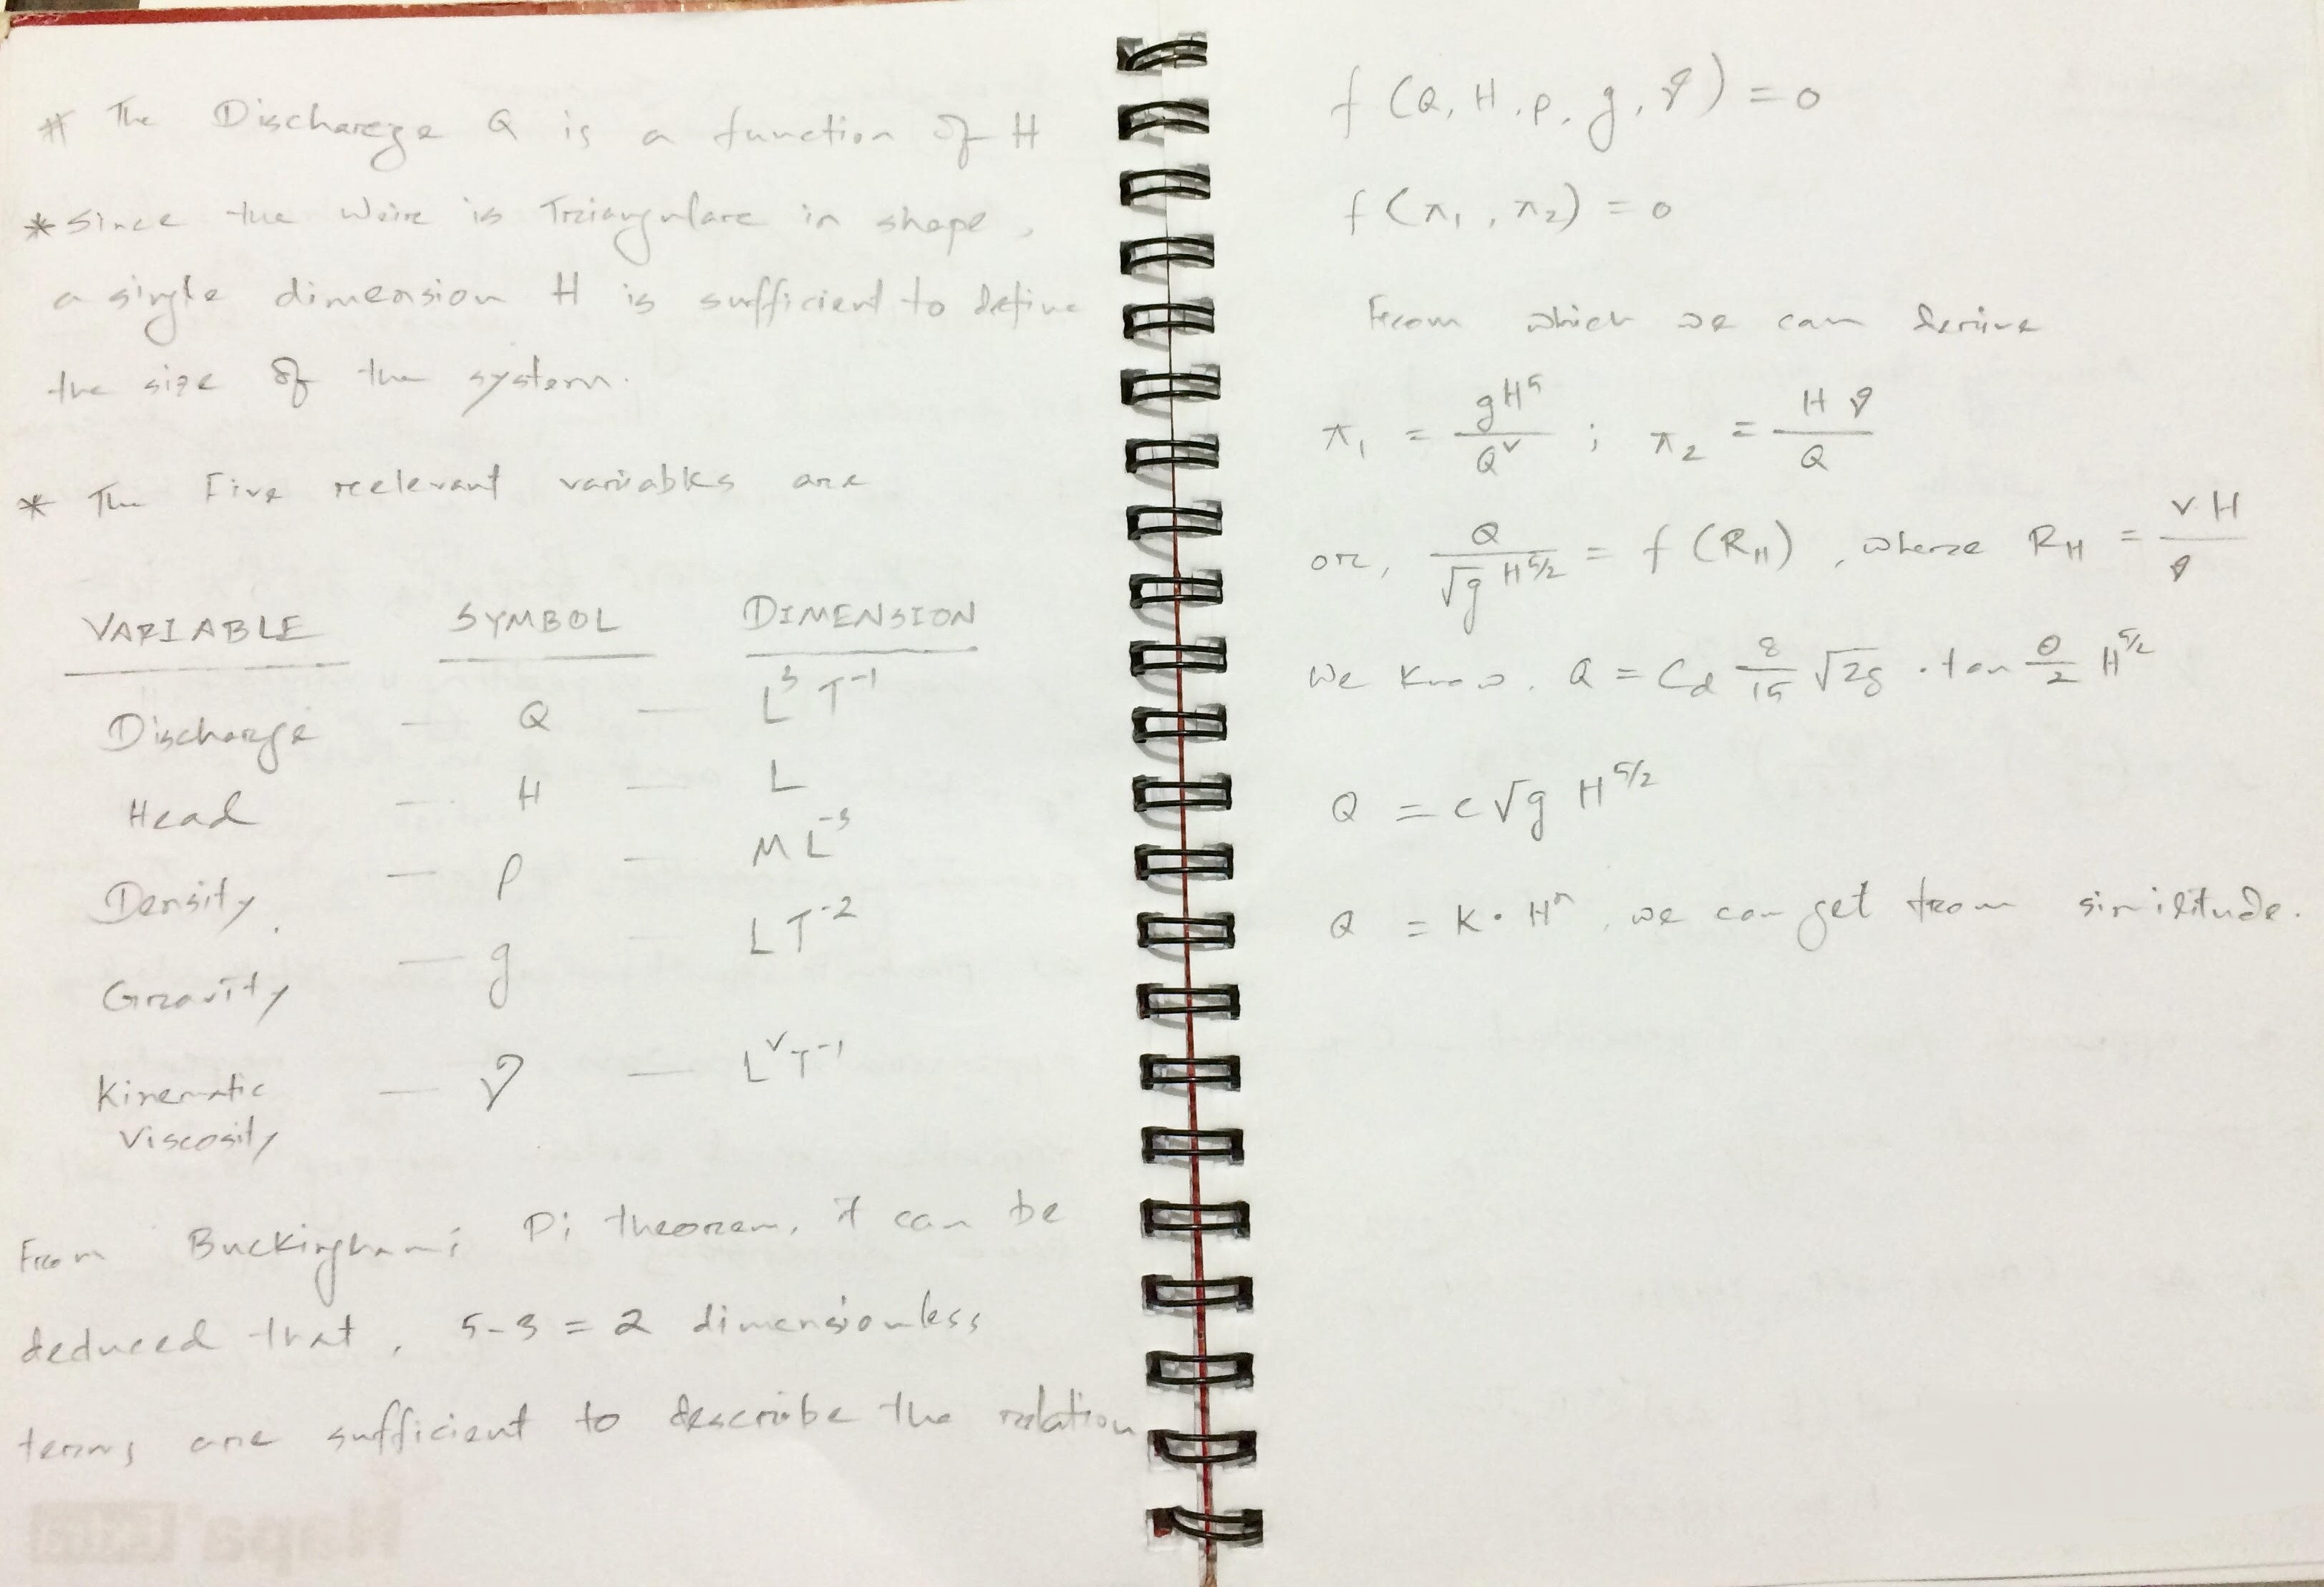 # The Discharge Q is a function of H
* Since the Weir is Triangular in shape,
a single dimension H is sufficient to define
the size of the system.
* The Five relevant variables are
VARIABLE SYMBOL DIMENSION
Discharge — Q — L³ T⁻¹
Head — H — L
Density. — ρ — M L⁻³
Gravity — g — L T⁻²
Kinematic Viscosity — ν — L^v T⁻¹
From Buckinghami Pi theorem, it can be
deduced that, 5-3 = 2 dimensionless
terms are sufficient to describe the relation
f (Q, H, ρ, g, ν) = 0
f (π₁, π₂) = 0
From which we can derive
π₁ = gH⁵/Q^v ; π₂ = Hν/Q
or, Q/(√g H^5/2) = f (R_H), where R_H = vH/ν
We know, Q = C_d 8/15 √2g · tan θ/2 H^5/2
Q = c√g H^5/2
Q = K · Hⁿ, we can get from similitude.